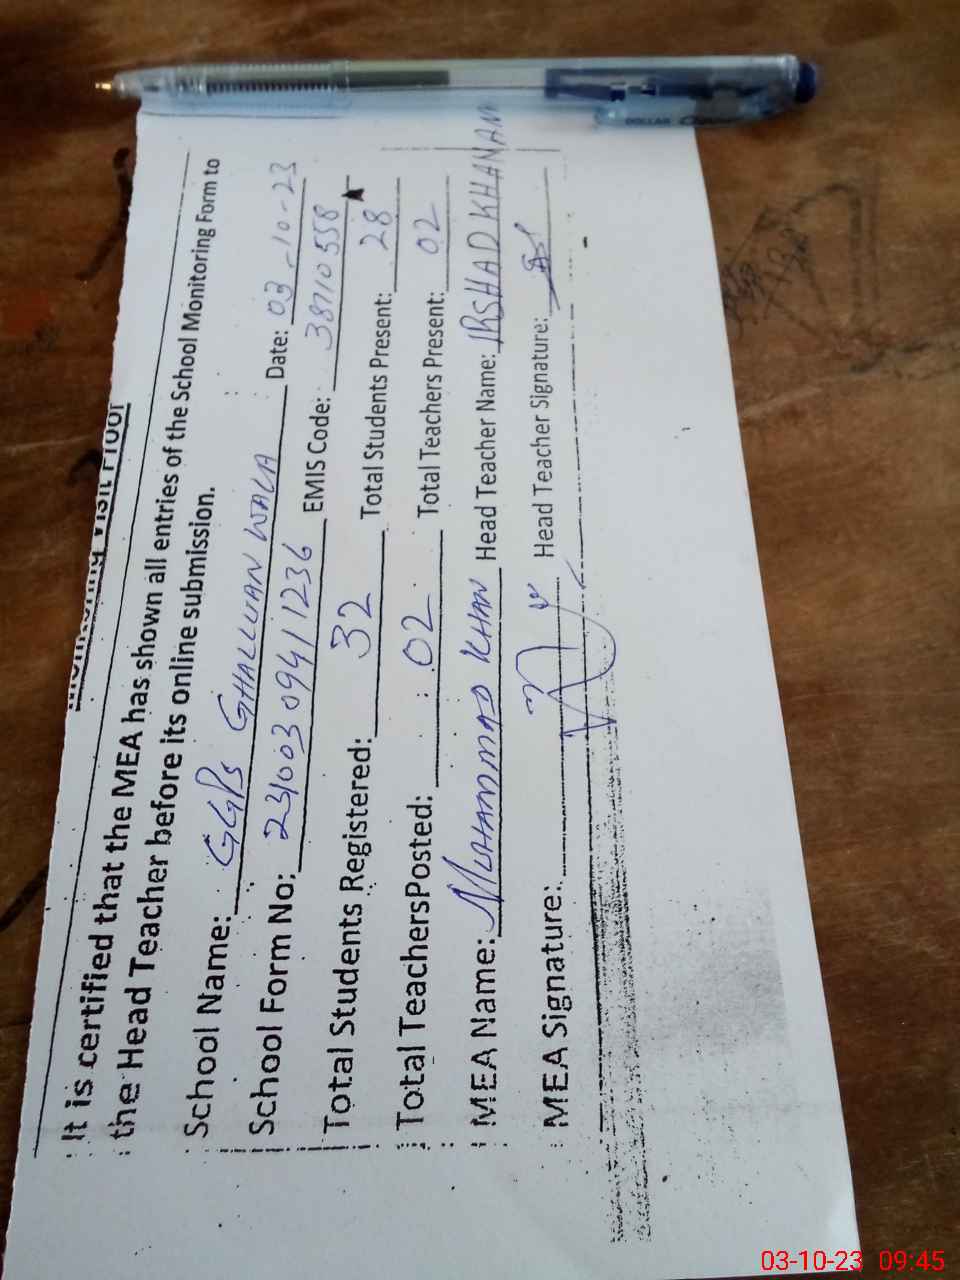 Monitoring Visit Proof
It is certified that the MEA has shown all entries of the School Monitoring Form to
the Head Teacher before its online submission.
School Name: GGPS GHALLUAN WALA Date: 03-10-23
School Form No: 231003 0941 1236 EMIS Code: 38710558
Total Students Registered: 32 Total Students Present: 28
Total TeachersPosted: 02 Total Teachers Present: 02
MEA Name: MUHAMMAD KHAN Head Teacher Name: IRSHAD KHANAM
MEA Signature: Head Teacher Signature:
DOLLAR
03-10-23 09:45